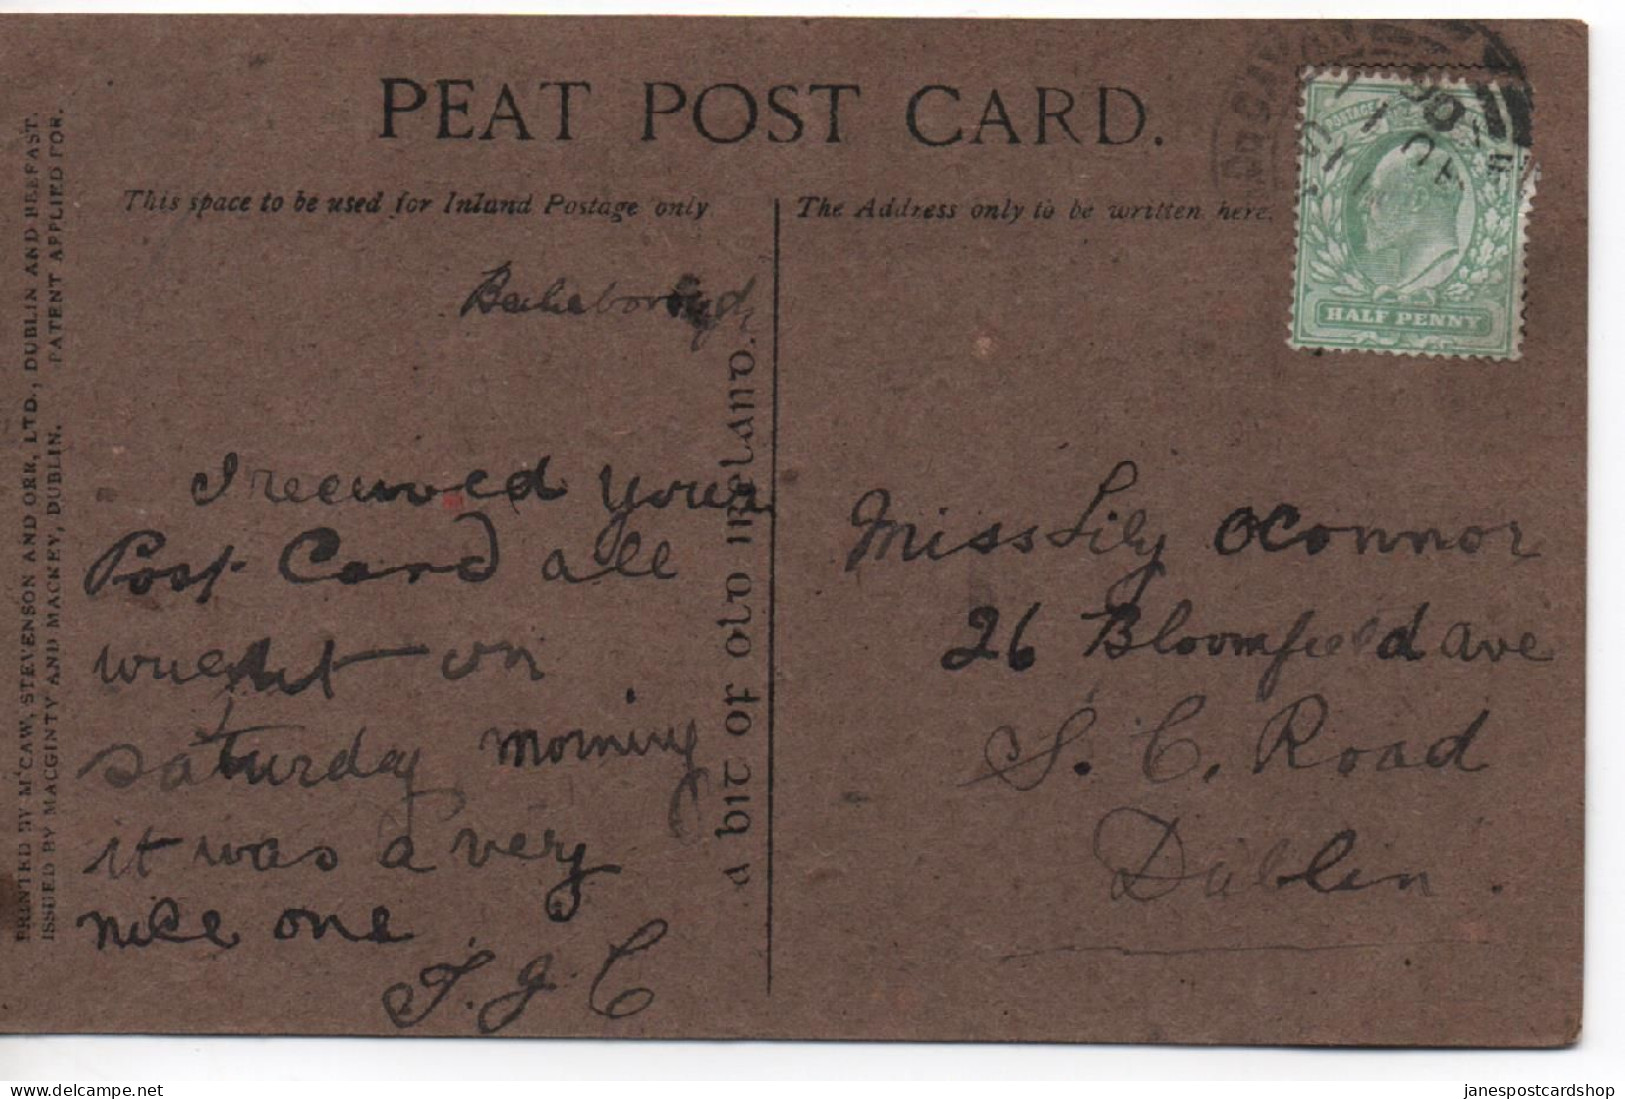 PEAT POST CARD.
This space to be used for Inland Postage only
The Address only to be written here.
HALF PENNY
I received your
Post Card all
on
saturday morning
it was a very
nice one
T. J. C
Miss Lily OConnor
26 Bloomfield ave
S. C. Road
Dublin.
a bit of old Ireland.
PRINTED BY M'CAW, STEVENSON AND ORR, LTD., DUBLIN AND BELFAST.
ISSUED BY MACGINTY AND MACKEY, DUBLIN. PATENT APPLIED FOR.
delcampe.net
janespostcardshop